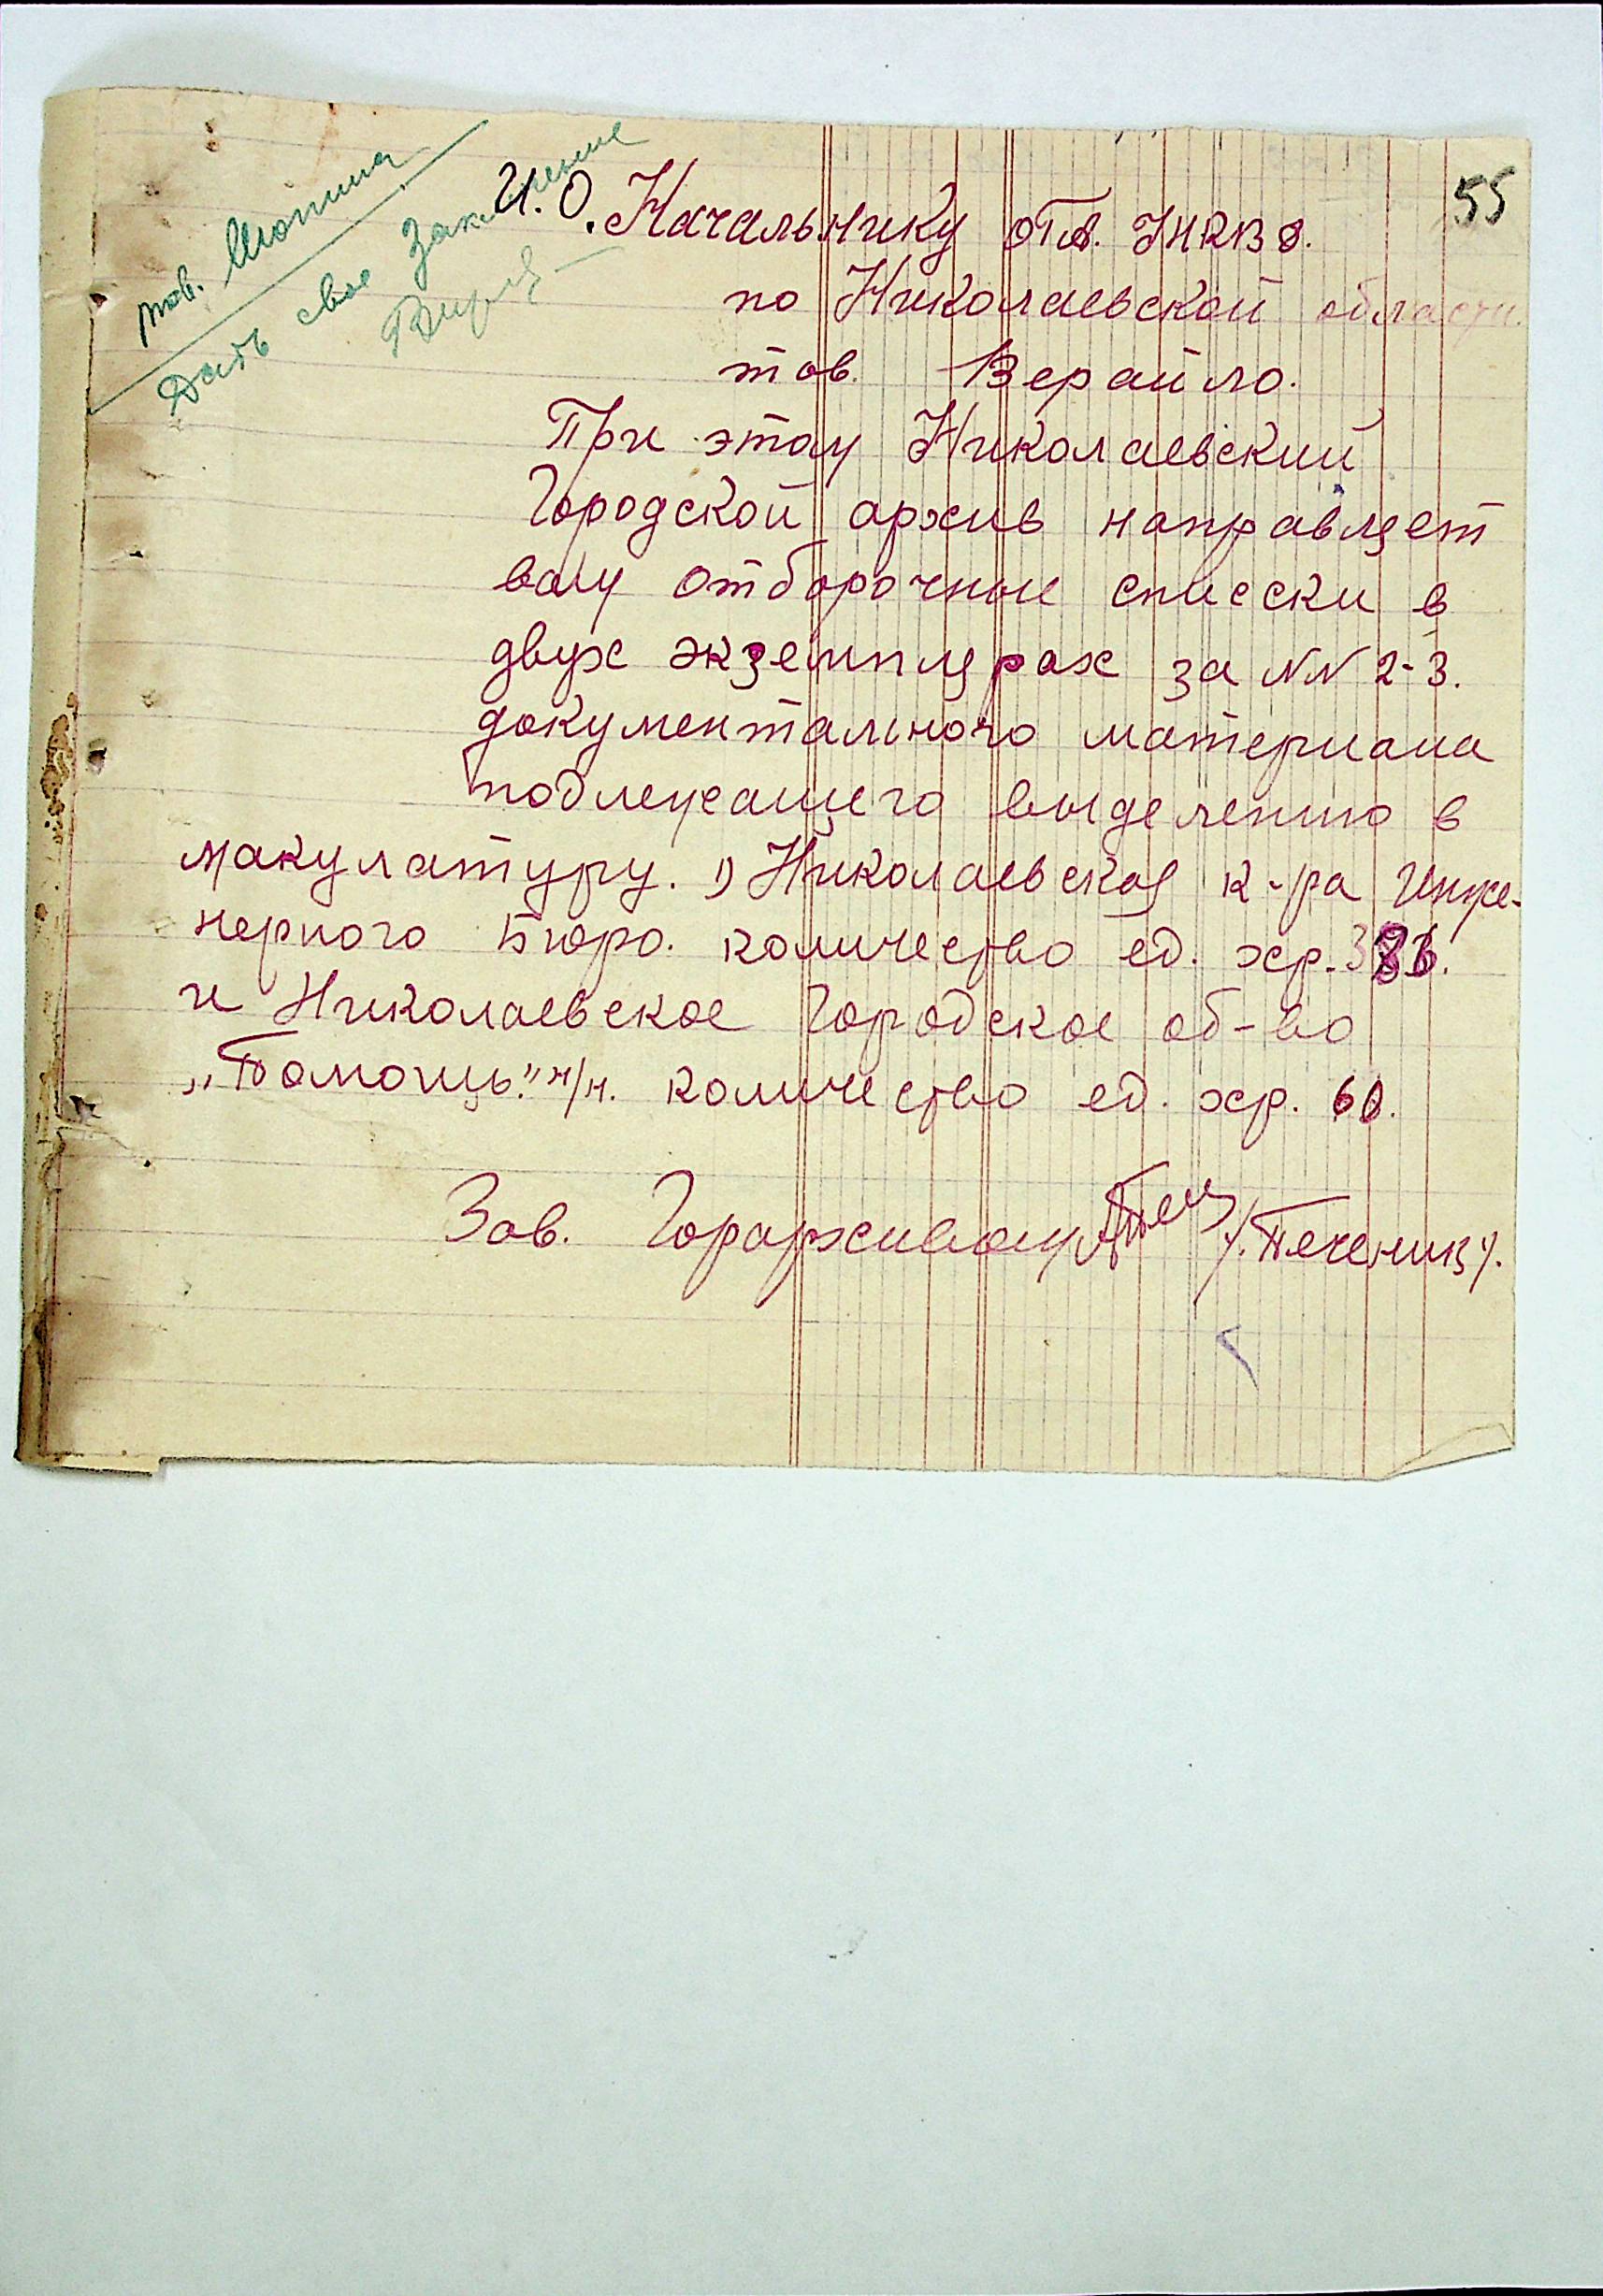 55
тов. Шопина
Дать свое Заключение
И.О. Начальнику отд. УНКВД.
по Николаевской области.
тов. Верайло.
При этом Николаевский
Городской архив направляет
вам отборочные списски в
двух экземплярах за NN 2-3.
документального материала
подлежащего выделению в
макулатуру. 1) Николаевская к-ра Инже-
нерного Бюро. количество ед. хр.
и Николаевское Городское об-во
„Помощь." н/н. количество ед. хр. 60.
Зав. Горархивом /.Печеник/.